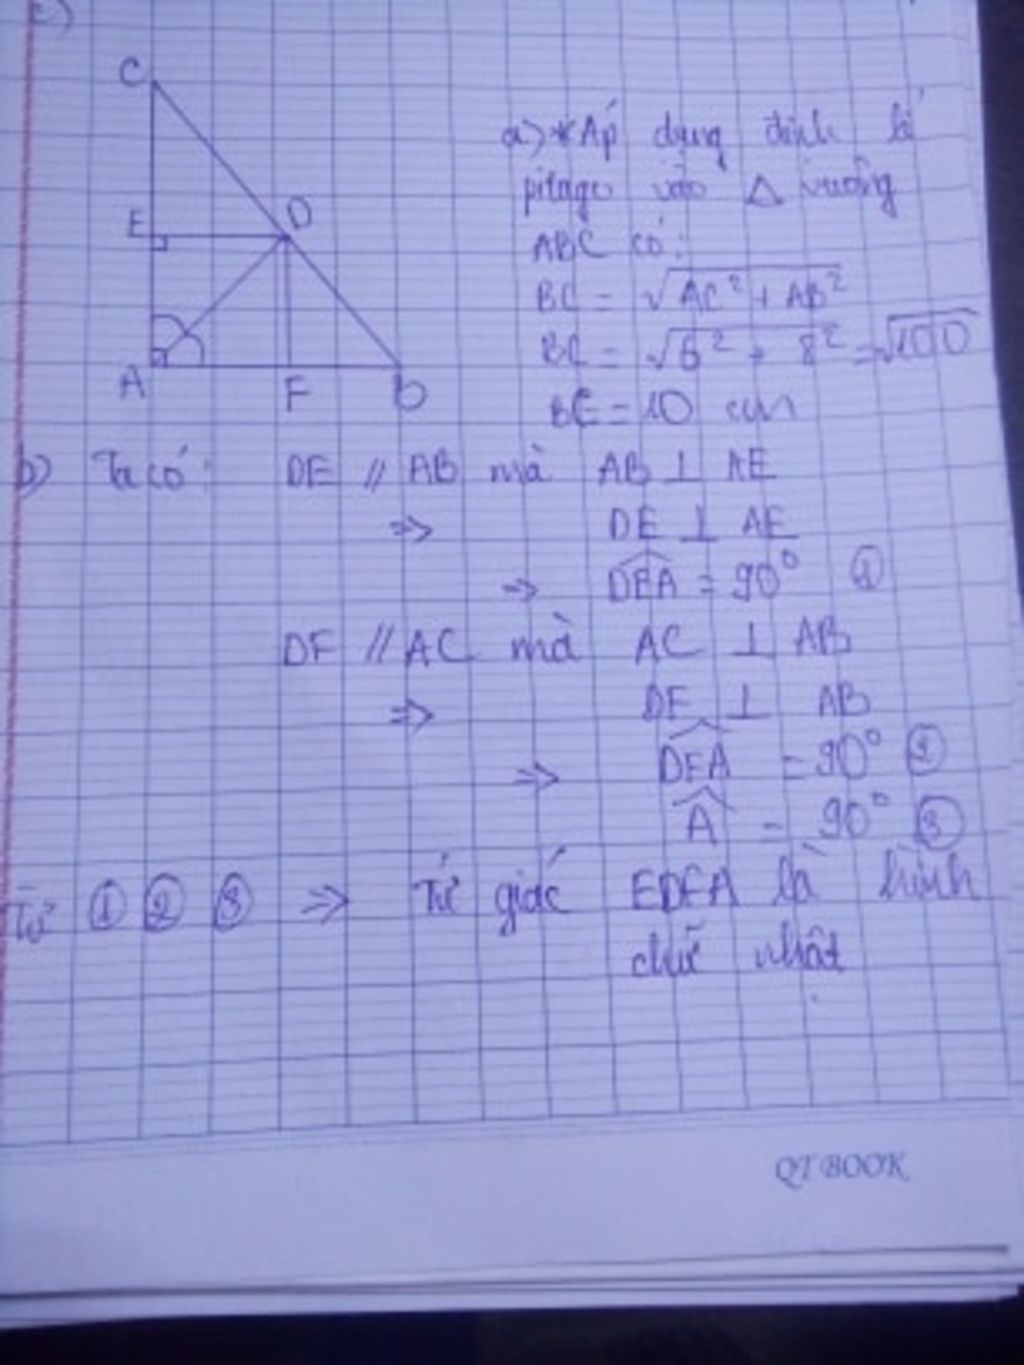 c)
C
E
D
A
F
B
a) * Áp dụng định lí
pitago vào Δ vuông
ABC có:
BC = √AC² + AB²
BC = √6² + 8² = √100
BC = 10 cm
b) Ta có: DE // AB mà AB ⊥ AE
=> DE ⊥ AE
=> DEA = 90° ①
DF // AC mà AC ⊥ AB
=> DF ⊥ AB
=> DFA = 90° ②
A = 90° ③
Từ ① ② ③ => Tứ giác EDFA là hình
chữ nhật
QT BOOK